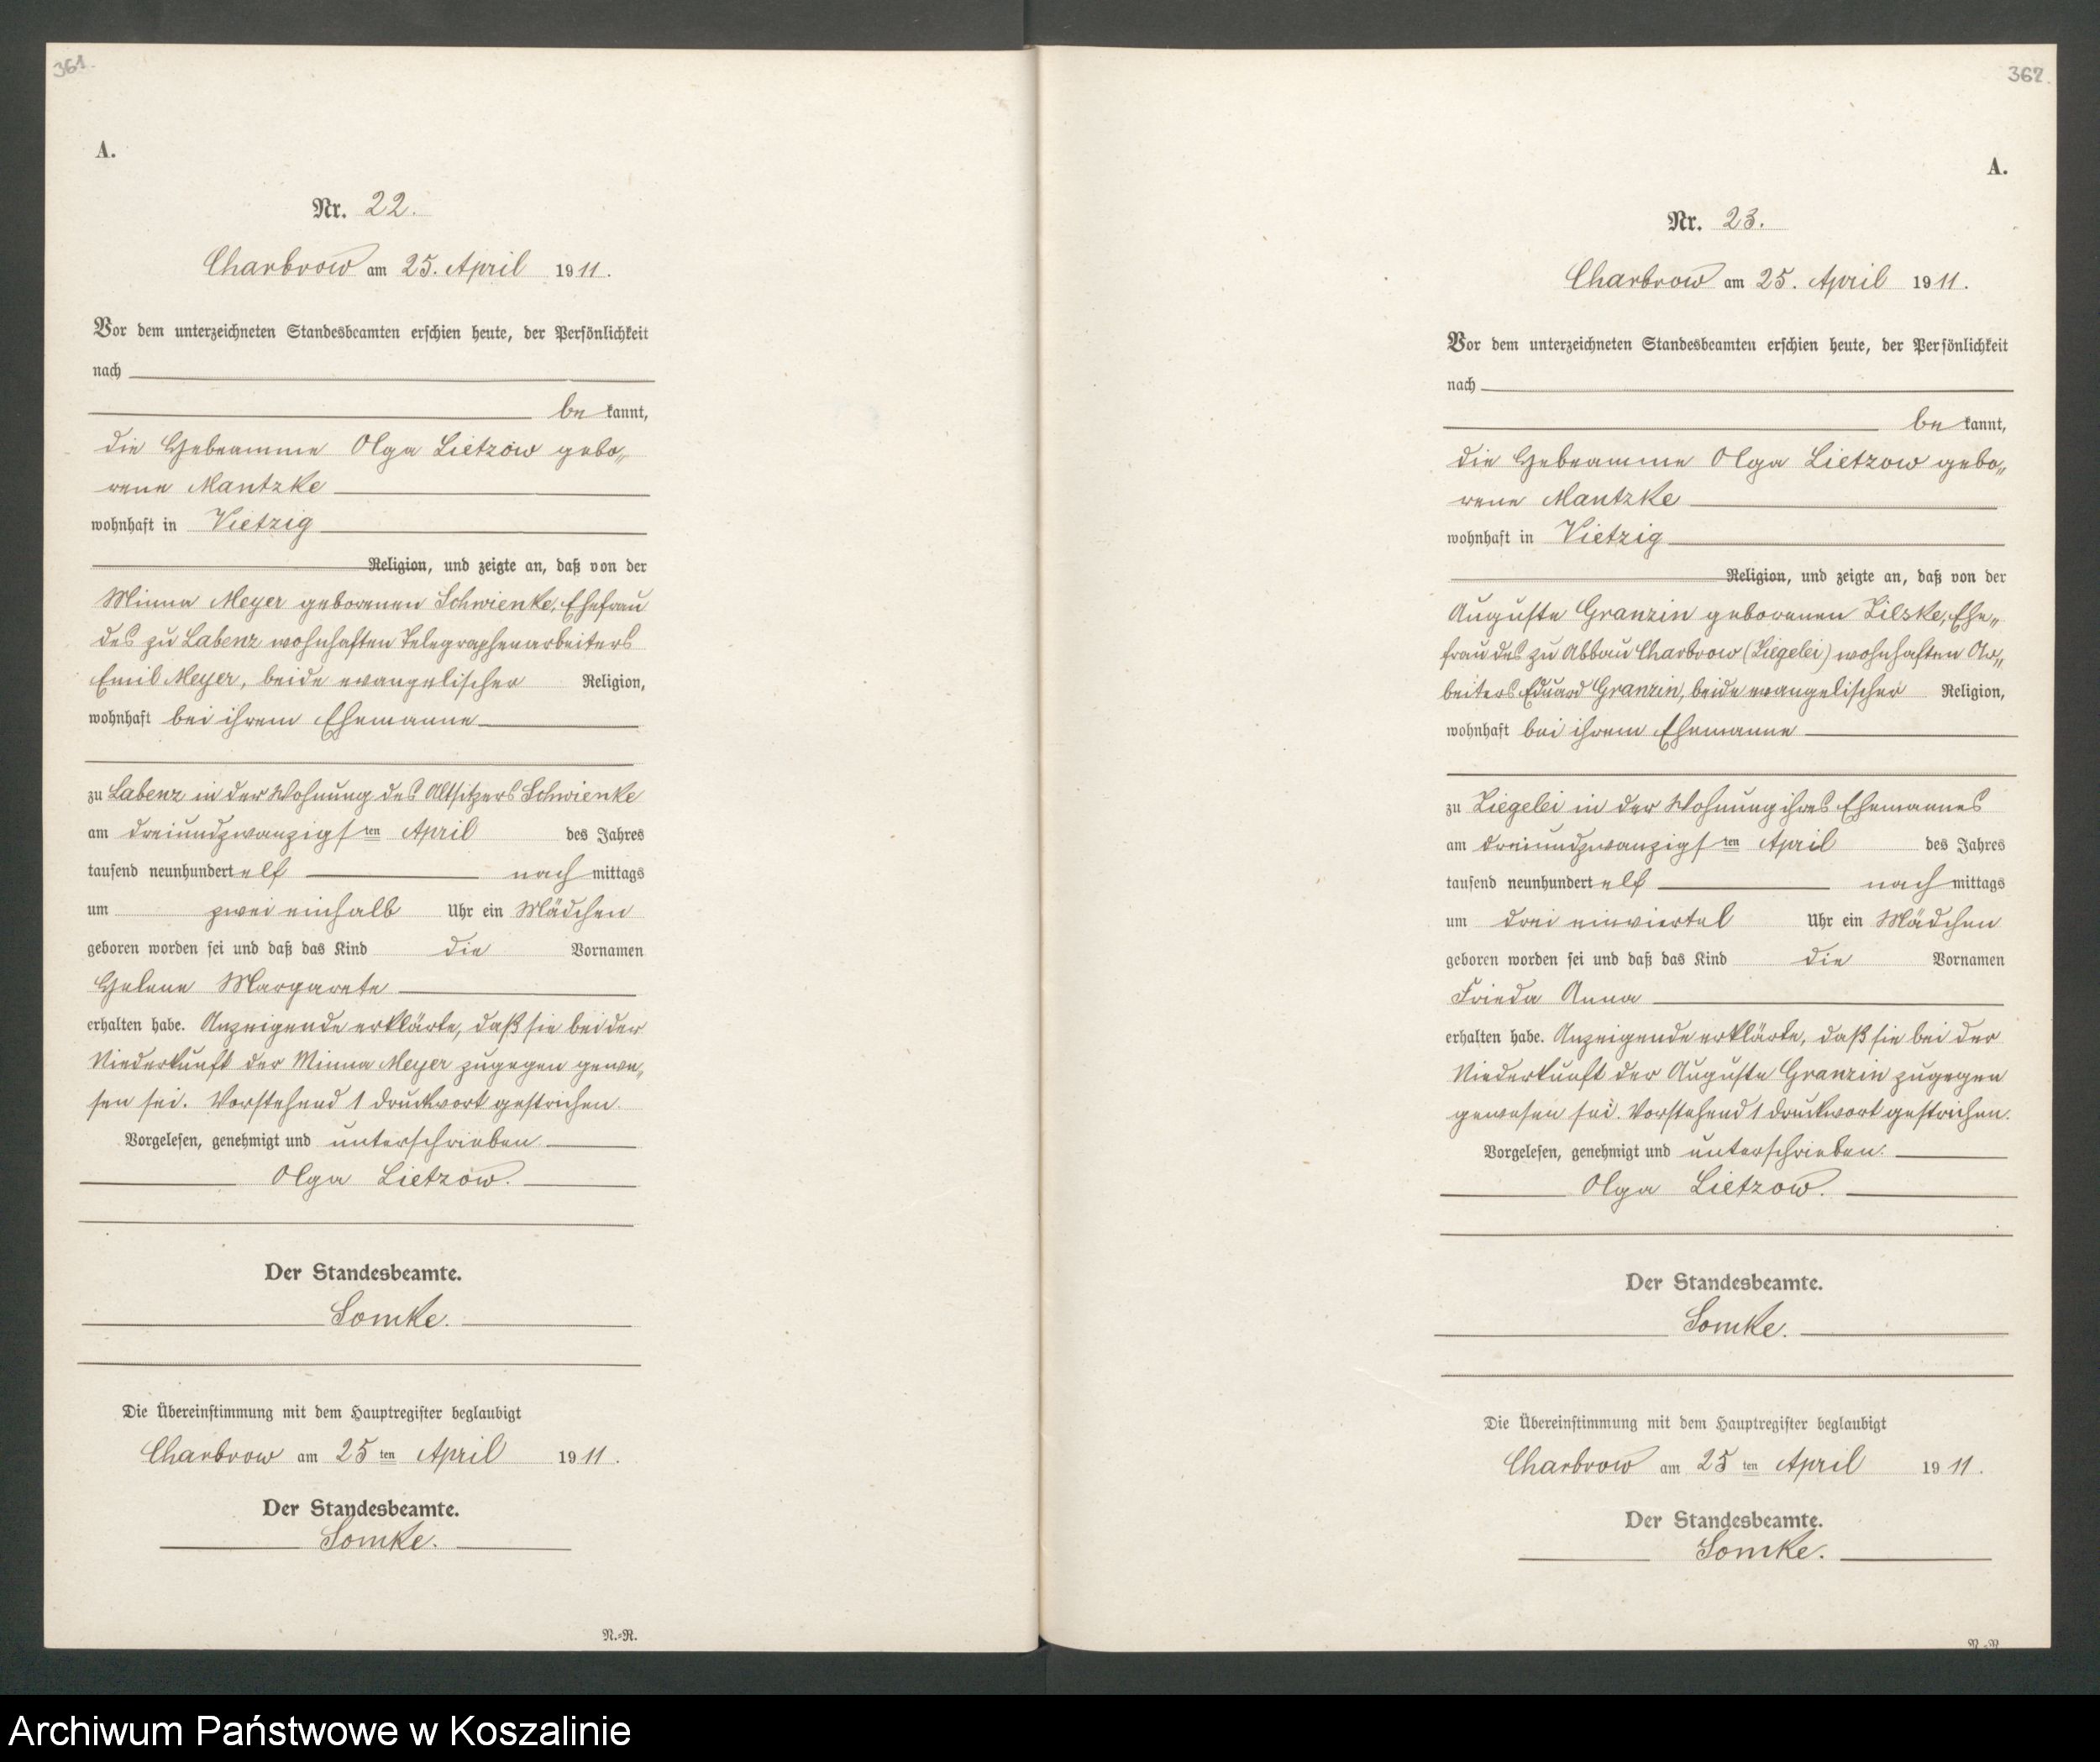 361.
A.
Nr. 22.
Charbrow am 25. April 1911.
Vor dem unterzeichneten Standesbeamten erschien heute, der Persönlichkeit
nach
be kannt,
die Hebeamme Olga Lietzow gebo„
rene Mantzke
wohnhaft in Vietzig
Religion, und zeigte an, daß von der
Minna Meyer geborenen Schwienke, Ehefrau
des zu Labenz wohnhaften Telegraphenarbeiters
Emil Meyer, beide evangelischer Religion,
wohnhaft bei ihrem Ehemanne
zu Labenz in der Wohnung des Altsitzers Schwienke
am dreiundzwanzigsten April des Jahres
tausend neunhundert elf nach mittags
um zwei einhalb Uhr ein Mädchen
geboren worden sei und daß das Kind die Vornamen
Helene Margarete
erhalten habe. Anzeigende erklärte, daß sie bei der
Niederkunft der Minna Meyer zugegen gewe„
sen sei. Vorstehend 1 Druckwort gestrichen.
Vorgelesen, genehmigt und unterschrieben
Olga Lietzow.
Der Standesbeamte.
Somke.
Die Übereinstimmung mit dem Hauptregister beglaubigt
Charbrow am 25 ten April 1911.
Der Standesbeamte.
Somke.
N.=R.
362.
A.
Nr. 23.
Charbrow am 25. April 1911.
Vor dem unterzeichneten Standesbeamten erschien heute, der Persönlichkeit
nach
be kannt,
die Hebeamme Olga Lietzow gebo„
rene Mantzke
wohnhaft in Vietzig
Religion, und zeigte an, daß von der
Auguste Granzin geborenen Zilske, Ehe„
frau des zu Abbau Charbrow (Ziegelei) wohnhaften Ar„
beiters Eduard Granzin, beide evangelischer Religion,
wohnhaft bei ihrem Ehemanne
zu Ziegelei in der Wohnung ihres Ehemannes
am dreiundzwanzigsten April des Jahres
tausend neunhundert elf nach mittags
um drei einviertel Uhr ein Mädchen
geboren worden sei und daß das Kind die Vornamen
Frieda Anna
erhalten habe. Anzeigende erklärte, daß sie bei der
Niederkunft der Auguste Granzin zugegen
gewesen sei. Vorstehend 1 Druckwort gestrichen.
Vorgelesen, genehmigt und unterschrieben.
Olga Lietzow.
Der Standesbeamte.
Somke.
Die Übereinstimmung mit dem Hauptregister beglaubigt
Charbrow am 25 ten April 1911.
Der Standesbeamte.
Somke.
Archiwum Państwowe w Koszalinie